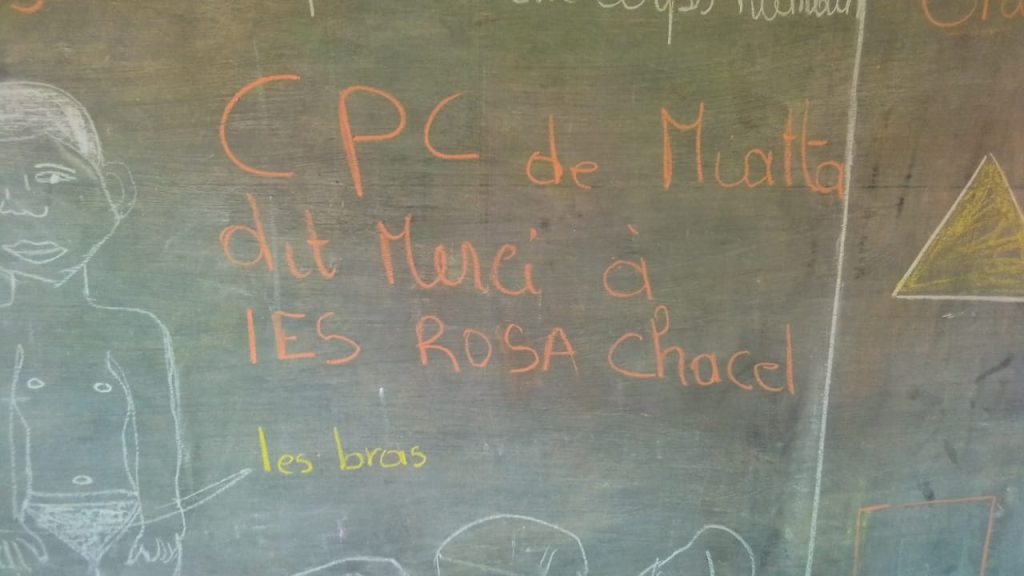 corps humain
CPC de Miatta
dit Merci à
IES ROSA Chacel
les bras